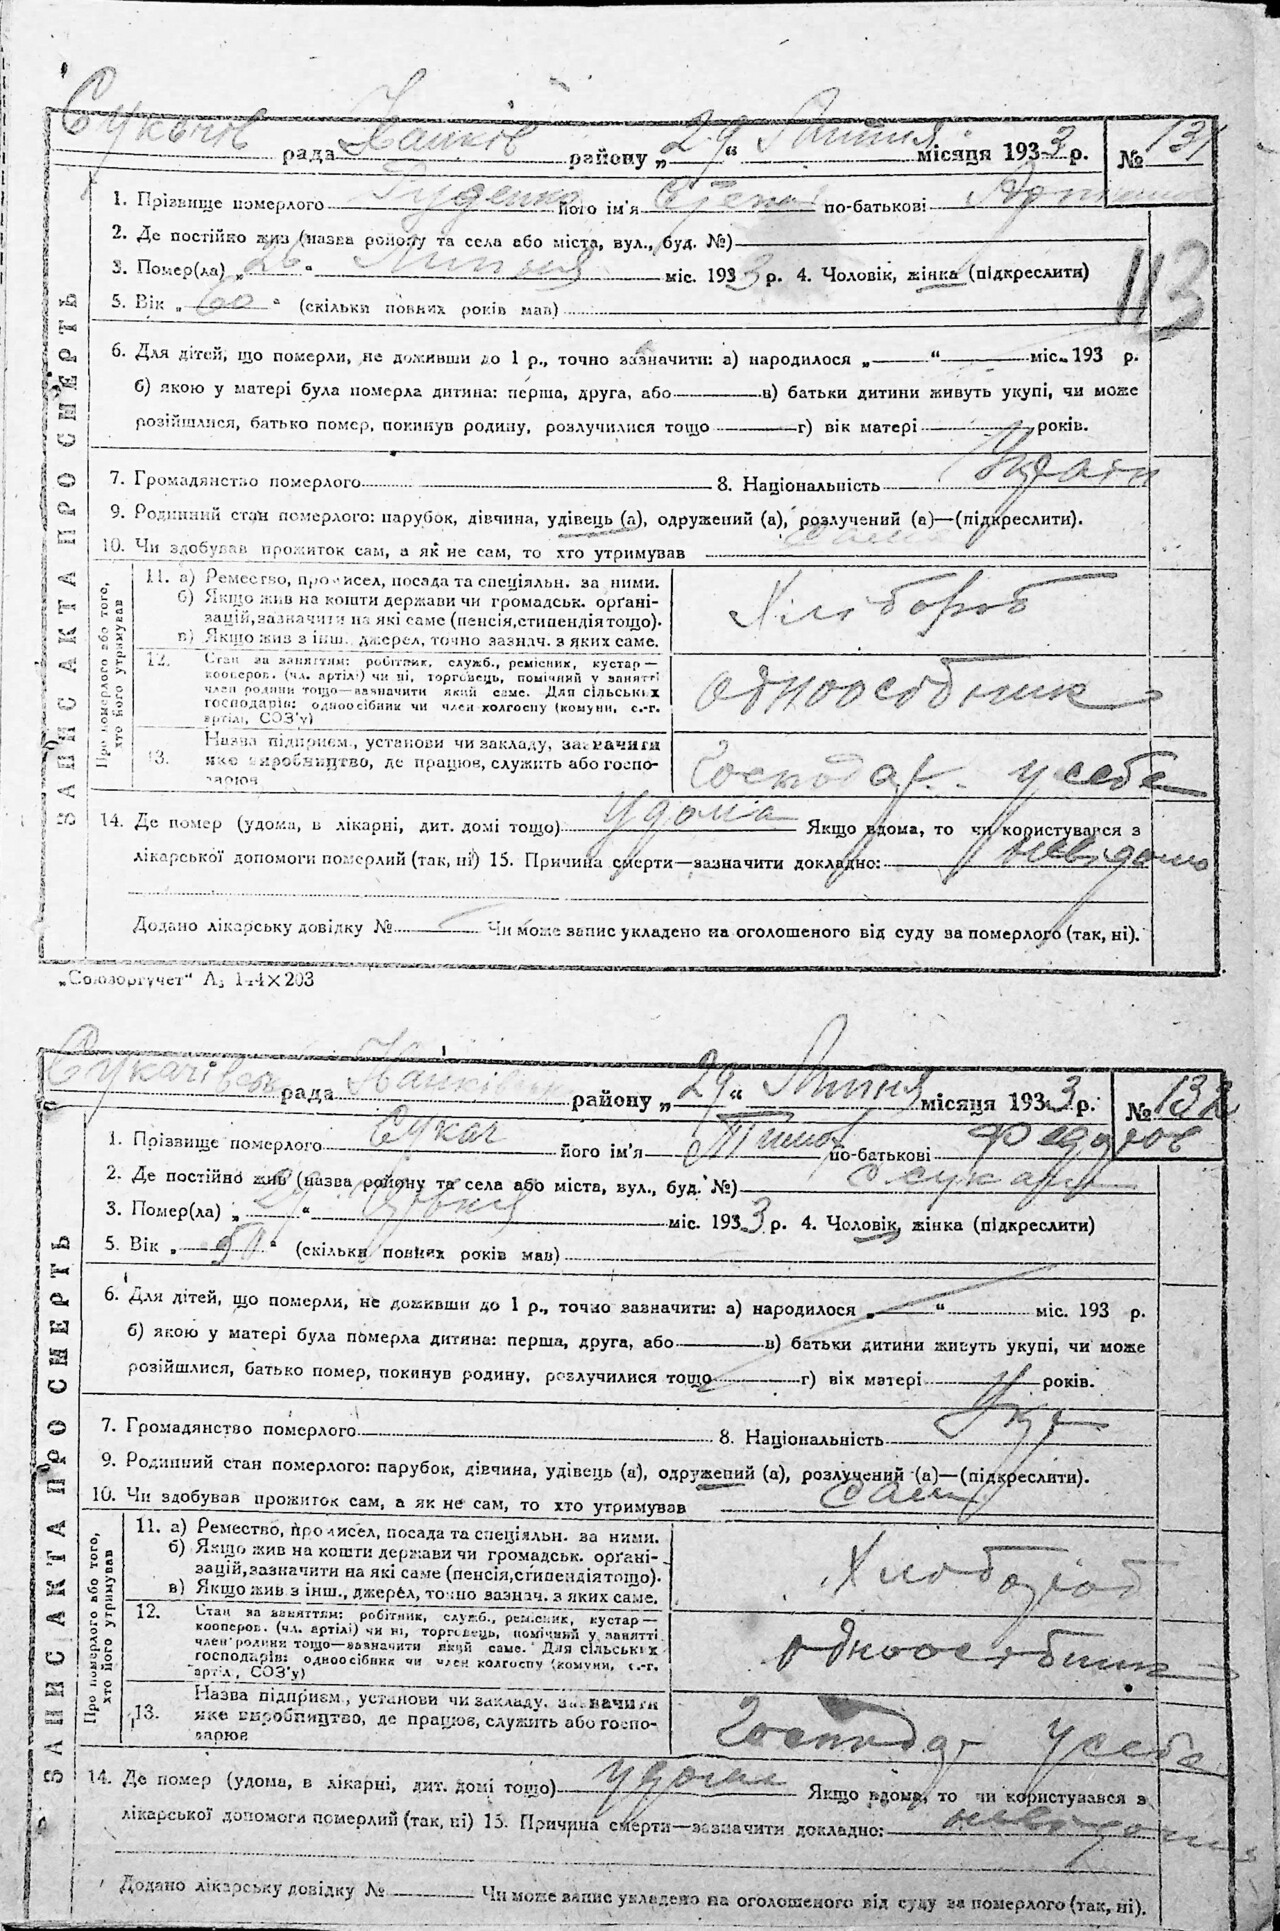 рада Ханків району „29“ Липня місяця 1933 р. № 131
1. Прізвище померлого Руденко його ім'я по-батькові
2. Де постійно жив (назва району та села або міста, вул., буд. №)
3. Помер(ла) „26“ Липня міс. 1933 р. 4. Чоловік, жінка (підкреслити)
113
5. Вік „60“ (скільки повних років мав)
6. Для дітей, що померли, не доживши до 1 р., точно зазначити: а) народилося „ “ міс. 193 р.
б) якою у матері була померла дитина: перша, друга, або в) батьки дитини живуть укупі, чи може
розійшлися, батько помер, покинув родину, розлучилися тощо г) вік матері років.
7. Громадянство померлого 8. Національність
9. Родинний стан померлого: парубок, дівчина, удівець (а), одружений (а), розлучений (а)—(підкреслити).
10. Чи здобував прожиток сам, а як не сам, то хто утримував сама
ЗАПИС АКТА ПРО СМЕРТЬ
Про померлого або того, хто його утримував
11. а) Ремество, промисел, посада та спеціяльн. за ними.
б) Якщо жив на кошти держави чи громадськ. орґані-
зацій, зазначити на які саме (пенсія, стипендія тощо).
в) Якщо жив з інш. джерел, точно зазнач. з яких саме.
Хлібороб
12. Стан за заняттям: робітник, служб., ремісник, кустар—
кооперов. (чл. артілі) чи ні, торговець, помічний у занятті
член родини тощо—зазначити який саме. Для сільських
господарів: одноосібник чи член колгоспу (комуни, с.-г.
артілі, СОЗ'у)
одноосібник
13. Назва підприєм., установи чи закладу, зазначити
яке виробництво, де працює, служить або госпо-
дарює
Господар. у себе
14. Де помер (удома, в лікарні, дит. домі тощо) удома Якщо вдома, то чи користувався з
лікарської допомоги померлий (так, ні) 15. Причина смерти—зазначити докладно: невідомо
Додано лікарську довідку № Чи може запис укладено на оголошеного від суду за померлого (так, ні).
„Союзоргучет“ А5 144×203
рада району „29“ Липня місяця 1933 р. № 132
1. Прізвище померлого Сукач його ім'я по-батькові Федоров
2. Де постійно жив (назва району та села або міста, вул., буд. №)
3. Помер(ла) „29“ міс. 1933 р. 4. Чоловік, жінка (підкреслити)
5. Вік „50“ (скільки повних років мав)
6. Для дітей, що померли, не доживши до 1 р., точно зазначити: а) народилося „ “ міс. 193 р.
б) якою у матері була померла дитина: перша, друга, або в) батьки дитини живуть укупі, чи може
розійшлися, батько помер, покинув родину, розлучилися тощо г) вік матері років.
7. Громадянство померлого 8. Національність Укр
9. Родинний стан померлого: парубок, дівчина, удівець (а), одружений (а), розлучений (а)—(підкреслити).
10. Чи здобував прожиток сам, а як не сам, то хто утримував сам
ЗАПИС АКТА ПРО СМЕРТЬ
Про померлого або того, хто його утримував
11. а) Ремество, промисел, посада та спеціяльн. за ними.
б) Якщо жив на кошти держави чи громадськ. орґані-
зацій, зазначити на які саме (пенсія, стипендія тощо).
в) Якщо жив з інш., джерел, точно зазнач. з яких саме.
Хлібороб
12. Стан за заняттям: робітник, служб., ремісник, кустар—
кооперов. (чл. артілі) чи ні, торговець, помічний у занятті
член родини тощо—зазначити який саме. Для сільських
господарів: одноосібник чи член колгоспу (комуни, с.-г.
артіл, СОЗ'у)
одноосібник
13. Назва підприєм., установи чи закладу, зазначити
яке виробництво, де працює, служить або госпо-
дарює
Господар у себе
14. Де помер (удома, в лікарні, дит. домі тощо) удома Якщо вдома, то чи користувався з
лікарської допомоги померлий (так, ні) 15. Причина смерти—зазначити докладно: невідомо
Додано лікарську довідку № Чи може запис укладено на оголошеного від суду за померлого (так, ні).